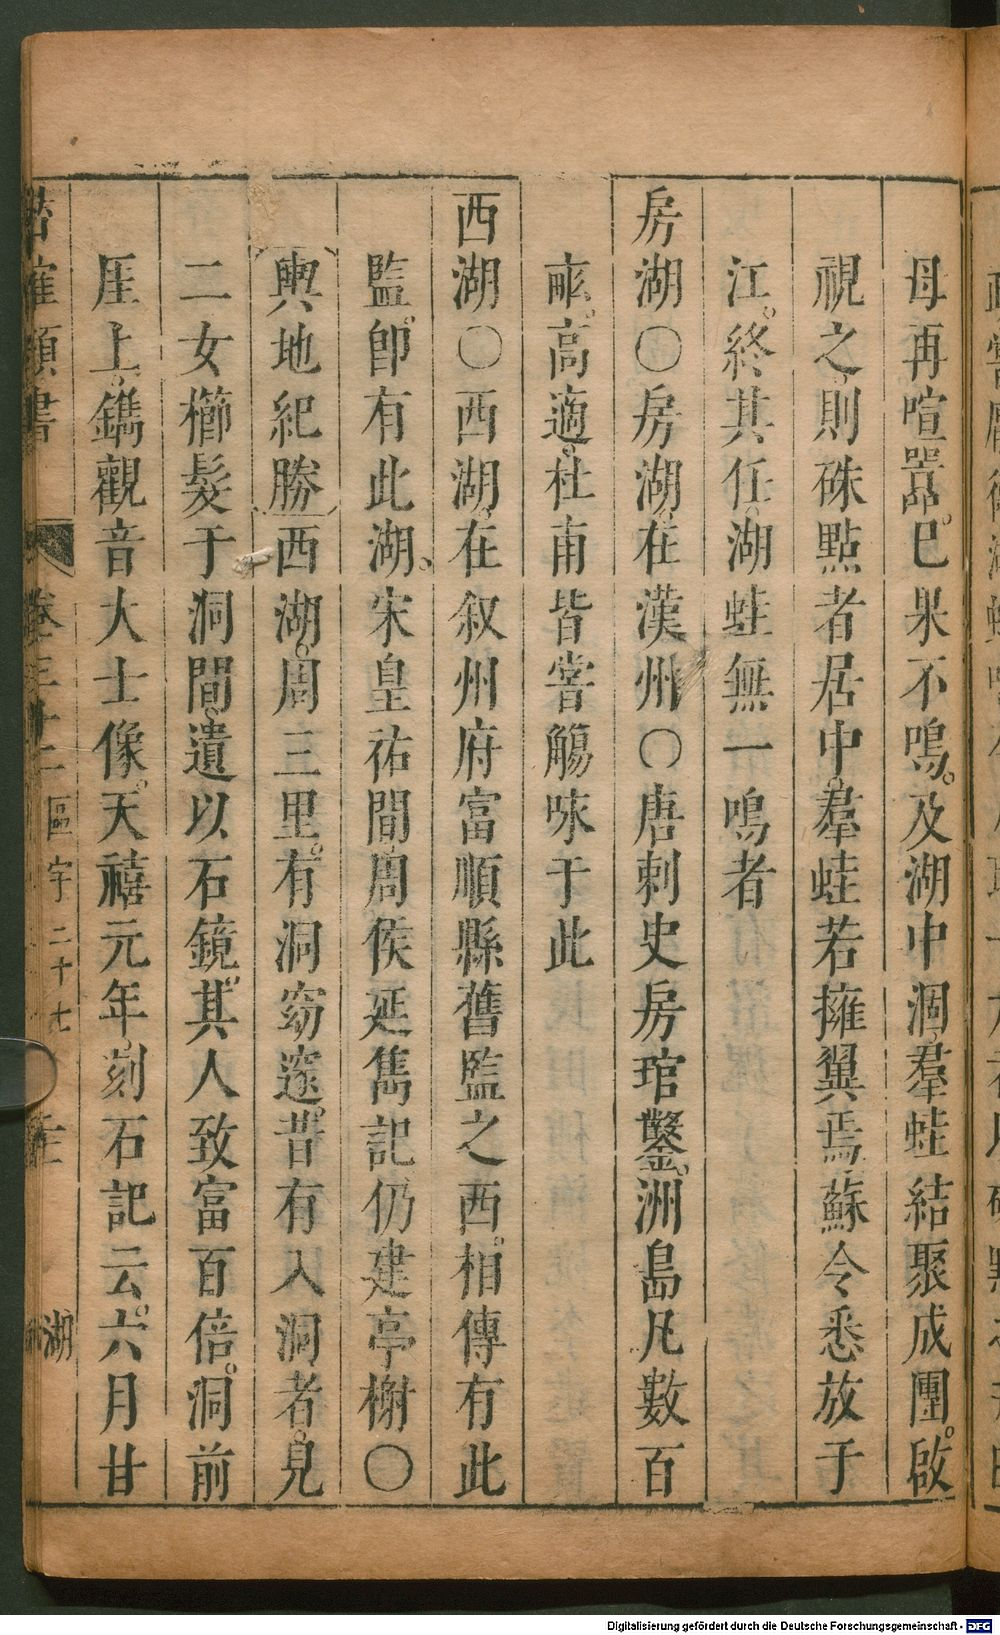 母再喧噐昂。巳果不鳴。及湖中涸。羣蛙結聚成團。啟
視之。則硃點者居中。羣蛙若擁翼焉。蘇令悉放于
江。終其任。湖蛙無一鳴者
房湖〇房湖。在漢州〇唐刺史房琯鑿。洲島凡數百
畞。高適。杜甫皆嘗觴咏于此
西湖〇西湖。在叙州府富順縣舊監之西。相傳有此
監。卽有此湖。宋皇祐間。周侯延雋記仍建亭榭〇
輿地紀勝西湖。周三里。有洞窈邃。昔有入洞者。見
二女櫛髮于洞間。遺以石鏡。其人致富百倍。洞前
厓上。鐫觀音大士像。天禧元年。刻石記云。六月甘
潛確類書
卷三十二
區宇二十七
湖
Digitalisierung gefördert durch die Deutsche Forschungsgemeinschaft - DFG